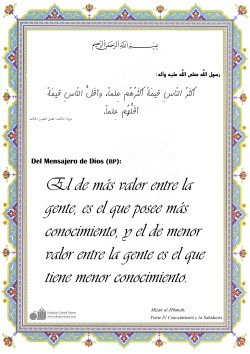 بِسْمِ اللَّهِ الرَّحْمَنِ الرَّحِيمِ
رسول الله صلى الله عليه وآله:
أكثَرُ النّاسِ قيمَةً أكثَرُهُم عِلماً، وأقَلُّ النّاسِ قيمَةً
أقَلُّهُم عِلماً.
Del Mensajero de Dios (BP):
El de más valor entre la
gente, es el que posee más
conocimiento, y el de menor
valor entre la gente es el que
tiene menor conocimiento.
Mizan al-Hikmah,
Parte El Conocimiento y la Sabiduría